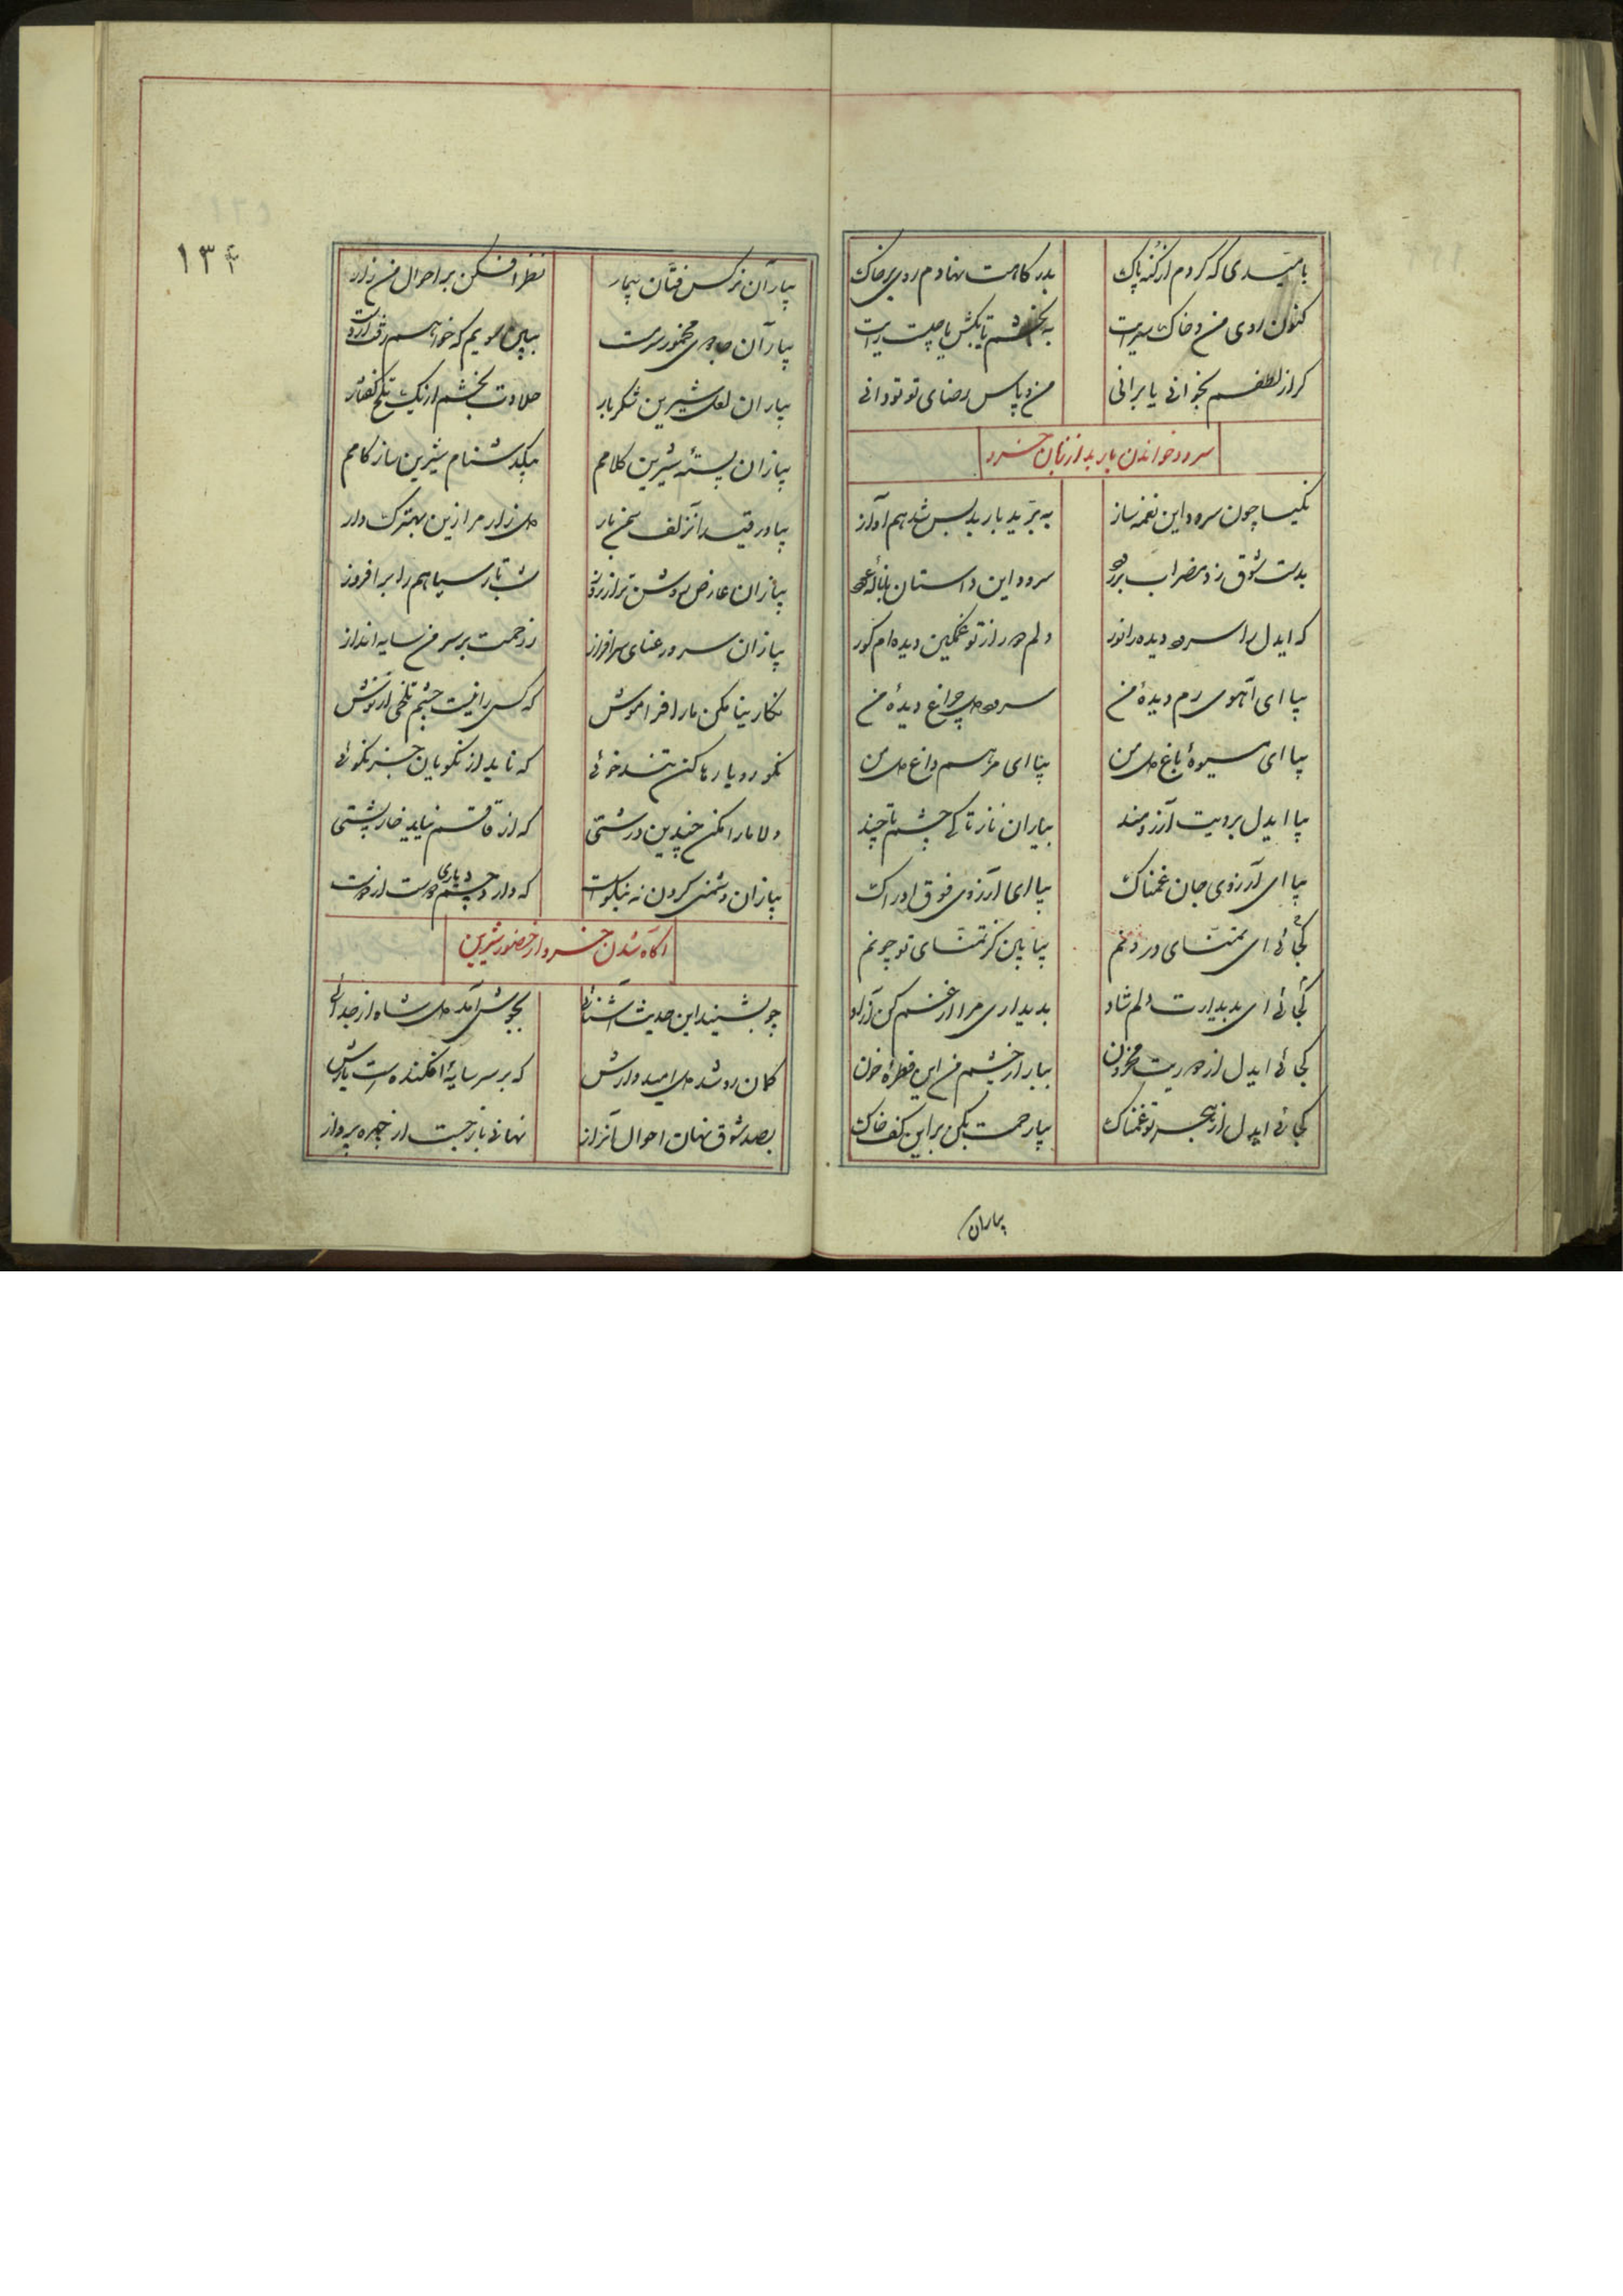 بامیدی که گردم از گنه پاک بدرگاهت نهادم روی بر خاک
کنون روی من و خاک سرایت به بخشم یا بکش یا چیست رایت
گر از لطفم بخوانی یا برانی من و پاس رضای تو تو دانی
سرود خواندن باربد از زبان خسرو
نکیسا چون سرود این نغمه ساز به تزئید باربد بس شد هم آواز
بدست شوق زد مضراب بر سرود این داستان با ناله
که ایدل را سرور و دیده را نور دلم دور از تو غمگین دیده ام کور
بیا ای آهوی رم دیدهٔ من سرور دل چراغ دیدهٔ من
بیا ای میوهٔ باغ دل من بیا ای مرهم داغ دل من
بیا ایدل برویت آرزومند بیاران ناز تا کی چشم تا چند
بیا ای آرزوی جان غمناک بیا ای آرزوی فوق ادراک
کجائی ای تمنای درونم بیا بین کز تمنای تو چونم
کجائی ای بدیدارت دلم شاد بدیداری مرا از غم کن آزاد
کجائی ایدل از دوریت محزون ببار از چشم من این قطرهٔ خون
کجائی ایدل از هجر تو غمناک بیا رحمت بکن بر این کف خاک
بیاران
۱۳۴
بیار آن نرگس فتان بیمار نظر افکن بر احوال من زار
بیار آن جادوی مخمور سرمست ببین سویم که خواهم رفت از دست
بیار آن لعل شیرین شکربار حلاوت بخشم از یک تلخ گفتار
بیار آن پستهٔ شیرین کلامم بیکدشنام شیرین ساز کامم
بیاور قید آنزلف دل زار مرا زین بهترک دار
بیار آن عارض روشن تر از روز شب تار سیاهم را بر افروز
بیار آن سرو رعنای سرافراز ز رحمت بر سر من سایه انداز
نگارینا مکن ما را فراموش که کس را نیست چشم تلخی از نوش
نکورویا رها کن تندخوئی که ناید از نکویان جز نکوئی
دلا ما را مکن چندین درشتی که از قاقم نیاید خارپشتی
بیاران دشمنی کردن نه نیکوست که دارد چشم یاری دوست از دوست
اگاه شدن خسرو از حضور شیرین
چو بشنید این حدیث آشنائی بجوش آمد دل شاه از جدائی
گمان رو شد دل امیدوارش که بر سر سایهٔ افکنده است یارش
بصد شوق نهان احوال آنراز نهانی باز جست از چهره پرداز